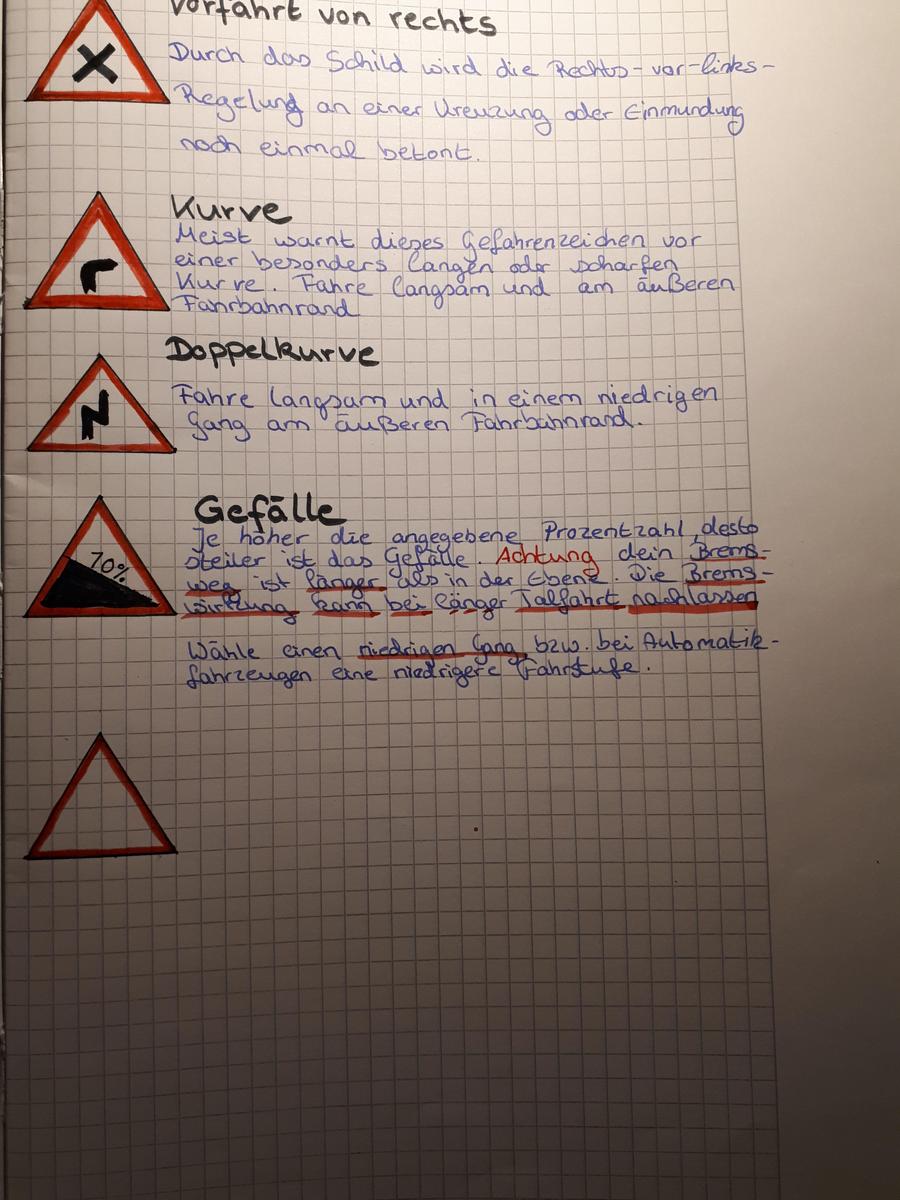 Vorfahrt von rechts
Durch das Schild wird die Rechts-vor-links-
Regelung an einer Kreuzung oder Einmundung
noch einmal betont.
Kurve
Meist warnt dieses Gefahrenzeichen vor
einer besonders langen oder scharfen
Kurve. Fahre langsam und am äußeren
Fahrbahnrand
Doppelkurve
Fahre langsam und in einem niedrigen
Gang am äußeren Fahrbahnrand.
Gefälle
Je höher die angegebene Prozentzahl, desto
10%
steiler ist das Gefälle. Achtung dein Brems-
weg ist länger als in der Ebene. Die Brems-
wirkung kann bei länger Talfahrt nachlassen
Wähle einen niedrigen Gang bzw. bei Automatik-
fahrzeugen eine niedrigere Fahrstufe.